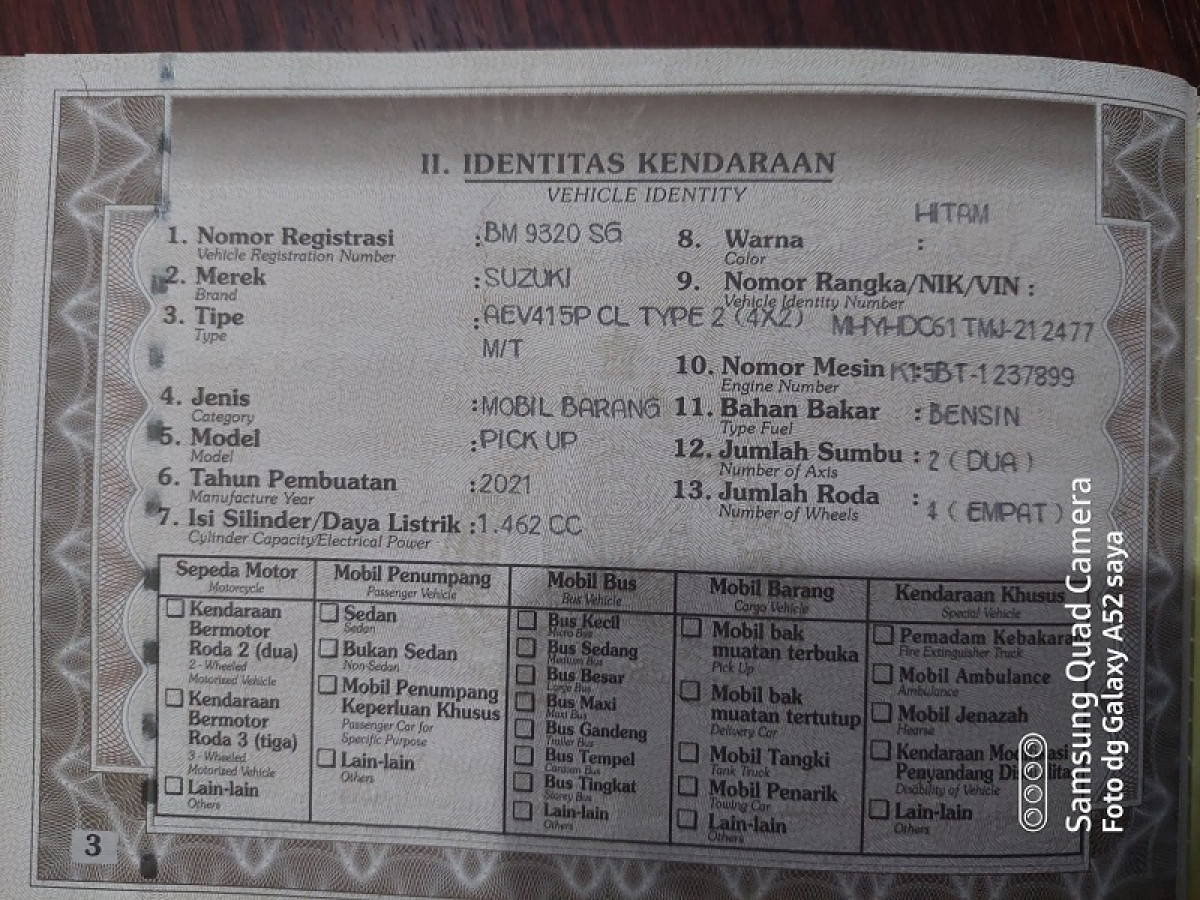 II. IDENTITAS KENDARAAN
VEHICLE IDENTITY
1. Nomor Registrasi : BM 9320 SG
Vehicle Registration Number
2. Merek : SUZUKI
Brand
3. Tipe : AEV415P CL TYPE 2 (4X2)
Type
M/T
4. Jenis : MOBIL BARANG
Category
5. Model : PICK UP
Model
6. Tahun Pembuatan : 2021
Manufacture Year
7. Isi Silinder/Daya Listrik : 1.462 CC
Cylinder Capacity/Electrical Power
HITAM
8. Warna :
Color
9. Nomor Rangka/NIK/VIN :
Vehicle Identity Number
MHYHDC61TMJ-212477
10. Nomor Mesin : K15BT-1237899
Engine Number
11. Bahan Bakar : BENSIN
Type Fuel
12. Jumlah Sumbu : 2 ( DUA )
Number of Axis
13. Jumlah Roda : 4 ( EMPAT )
Number of Wheels
Sepeda Motor
Motorcycle
Kendaraan
Bermotor
Roda 2 (dua)
2 - Wheeled
Motorized Vehicle
Kendaraan
Bermotor
Roda 3 (tiga)
3 - Wheeled
Motorized Vehicle
Lain-lain
Others
Mobil Penumpang
Passenger Vehicle
Sedan
Sedan
Bukan Sedan
Non-Sedan
Mobil Penumpang
Keperluan Khusus
Passenger Car for
Specific Purpose
Lain-lain
Others
Mobil Bus
Bus Vehicle
Bus Kecil
Micro Bus
Bus Sedang
Medium Bus
Bus Besar
Large Bus
Bus Maxi
Maxi Bus
Bus Gandeng
Trailer Bus
Bus Tempel
Caravan Bus
Bus Tingkat
Storey Bus
Lain-lain
Others
Mobil Barang
Cargo Vehicle
Mobil bak
muatan terbuka
Pick Up
Mobil bak
muatan tertutup
Delivery Car
Mobil Tangki
Tank Truck
Mobil Penarik
Towing Car
Lain-lain
Others
Kendaraan Khusus
Special Vehicle
Pemadam Kebakaran
Fire Extinguisher Truck
Mobil Ambulance
Ambulance
Mobil Jenazah
Hearse
Kendaraan
Penyandang
Disability of Vehicle
Lain-lain
Others
3
Samsung Quad Camera
Foto dg Galaxy A52 saya